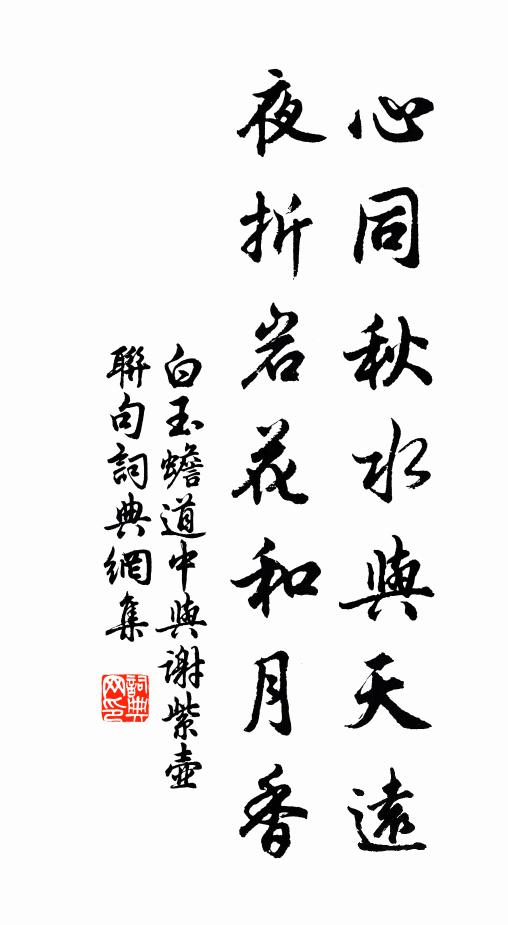 心同秋水與天遠
夜折岩花和月香
白玉蟾道中與謝紫壺
聯句詞典網集
詞典
网印